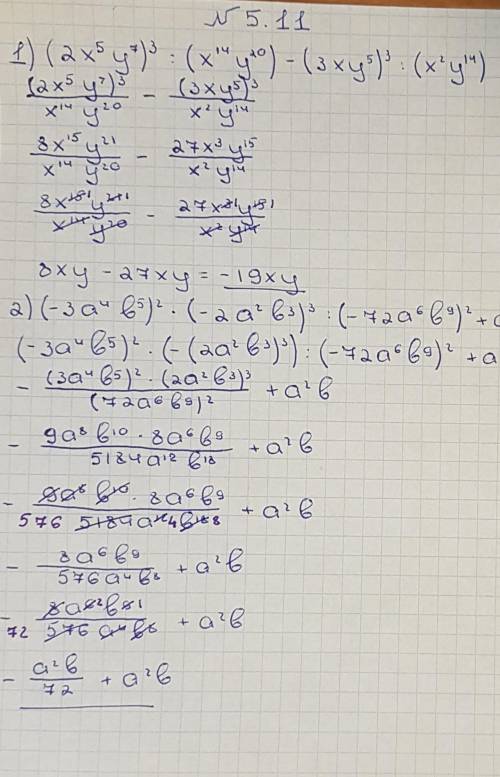 N 5.11
1) (2x⁵y⁷)³ : (x¹⁴y²⁰) - (3xy⁵)³ : (x²y¹⁴)
(2x⁵y⁷)³/x¹⁴y²⁰ - (3xy⁵)³/x²y¹⁴
8x¹⁵y²¹/x¹⁴y²⁰ - 27x³y¹⁵/x²y¹⁴
8x y/x¹⁴y²⁰ - 27x y/x²y¹⁴
8xy - 27xy = -19xy
2) (-3a⁴b⁵)² · (-2a²b³)³ : (-72a⁶b⁹)² + a
(-3a⁴b⁵)² · (-(2a²b³)³) : (-72a⁶b⁹)² + a
- (3a⁴b⁵)² · (2a²b³)³/(72a⁶b⁹)² + a²b
- 9a⁸b¹⁰ · 8a⁶b⁹/5184a¹²b¹⁸ + a²b
- 9a⁸b¹⁰ · 8a⁶b⁹/576 5184a¹²4b¹⁸8 + a²b
- 8a⁶b⁹/576a⁴b⁸ + a²b
- 8a⁶2b⁹1/72 576a⁴b⁸ + a²b
- a²b/72 + a²b